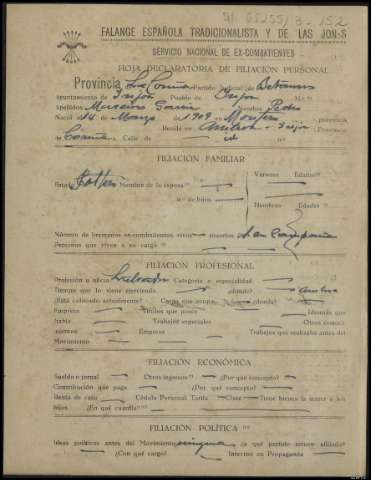 FALANGE ESPAÑOLA TRADICIONALISTA Y DE LAS JON-S
SERVICIO NACIONAL DE EX-COMBATIENTES
HOJA DECLARATORIA DE FILIACIÓN PERSONAL
Provincia La Coruña Partido judicial de Betanzos
Ayuntamiento de Irijoa Pueblo de Irijoa N.º
Apellidos García Nombre Pedro
Nació el 14 de Marzo de 1909 en provincia
Coruña Calle de id
FILIACIÓN FAMILIAR
Estado Soltero Nombre de la esposa Varones Edades
n.º de hijos
Hembras Edades
Número de hermanos ex-combatientes vivos muertos
Personas que viven a su cargo
FILIACIÓN PROFESIONAL
Profesión u oficio Labrador Categoría o especialidad
Tiempo que lo viene ejerciendo ¿dónde?
¿Está colocado actualmente? Cargo que ocupa ¿dónde?
Títulos que posee Idiomas que
habla Trabajos especiales Otros conoci-
mientos Empresa Trabajos que realizaba antes del
Movimiento
FILIACIÓN ECONÓMICA
Sueldo o jornal Otros ingresos ¿Por qué concepto?
Contribución que paga ¿Por qué concepto?
Renta de casa Cédula Personal Tarifa Clase Tiene bienes la mujer o los
hijos ¿En qué cuantía?
FILIACIÓN POLÍTICA
Ideas políticas antes del Movimiento ninguna ¿a qué partido estuvo afiliado?
¿Con qué cargo? Intervino en Propaganda